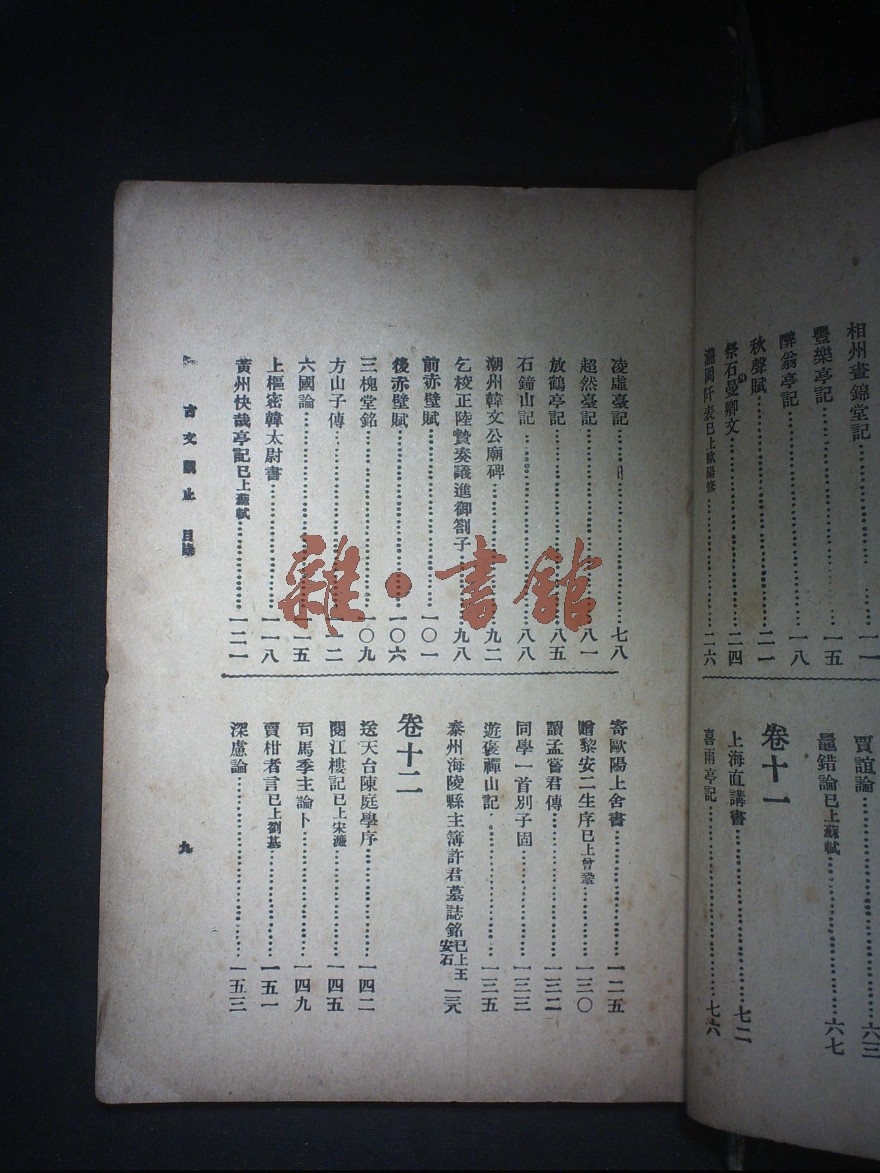 相州晝錦堂記……一一
豐樂亭記……一五
醉翁亭記……一八
秋聲賦……二一
祭石曼卿文……二四
瀧岡阡表已上歐陽修……二六
賈誼論……六三
鼂錯論已上蘇軾……六七
卷十一
上海直講書……七二
喜雨亭記……七六
凌虛臺記……七八
超然臺記……八一
放鶴亭記……八五
石鐘山記……八八
潮州韓文公廟碑……九二
乞校正陸贄奏議進御劄子……九八
前赤壁賦……一〇一
後赤壁賦……一〇六
三槐堂銘……一〇九
方山子傳……一二
六國論……一五
上樞密韓太尉書……一一八
黃州快哉亭記已上蘇軾……一二一
寄歐陽上舍書……一二五
贈黎安二生序已上曾鞏……一三〇
讀孟嘗君傳……一三二
同學一首別子固……一三三
遊褒禪山記……一三五
泰州海陵縣主簿許君墓誌銘已上王安石 一三八
卷十二
送天台陳庭學序……一四二
閱江樓記已上宋濂……一四五
司馬季主論卜……一四九
賣柑者言已上劉基……一五一
深慮論……一五三
古文觀止 目錄
九
雜·書館